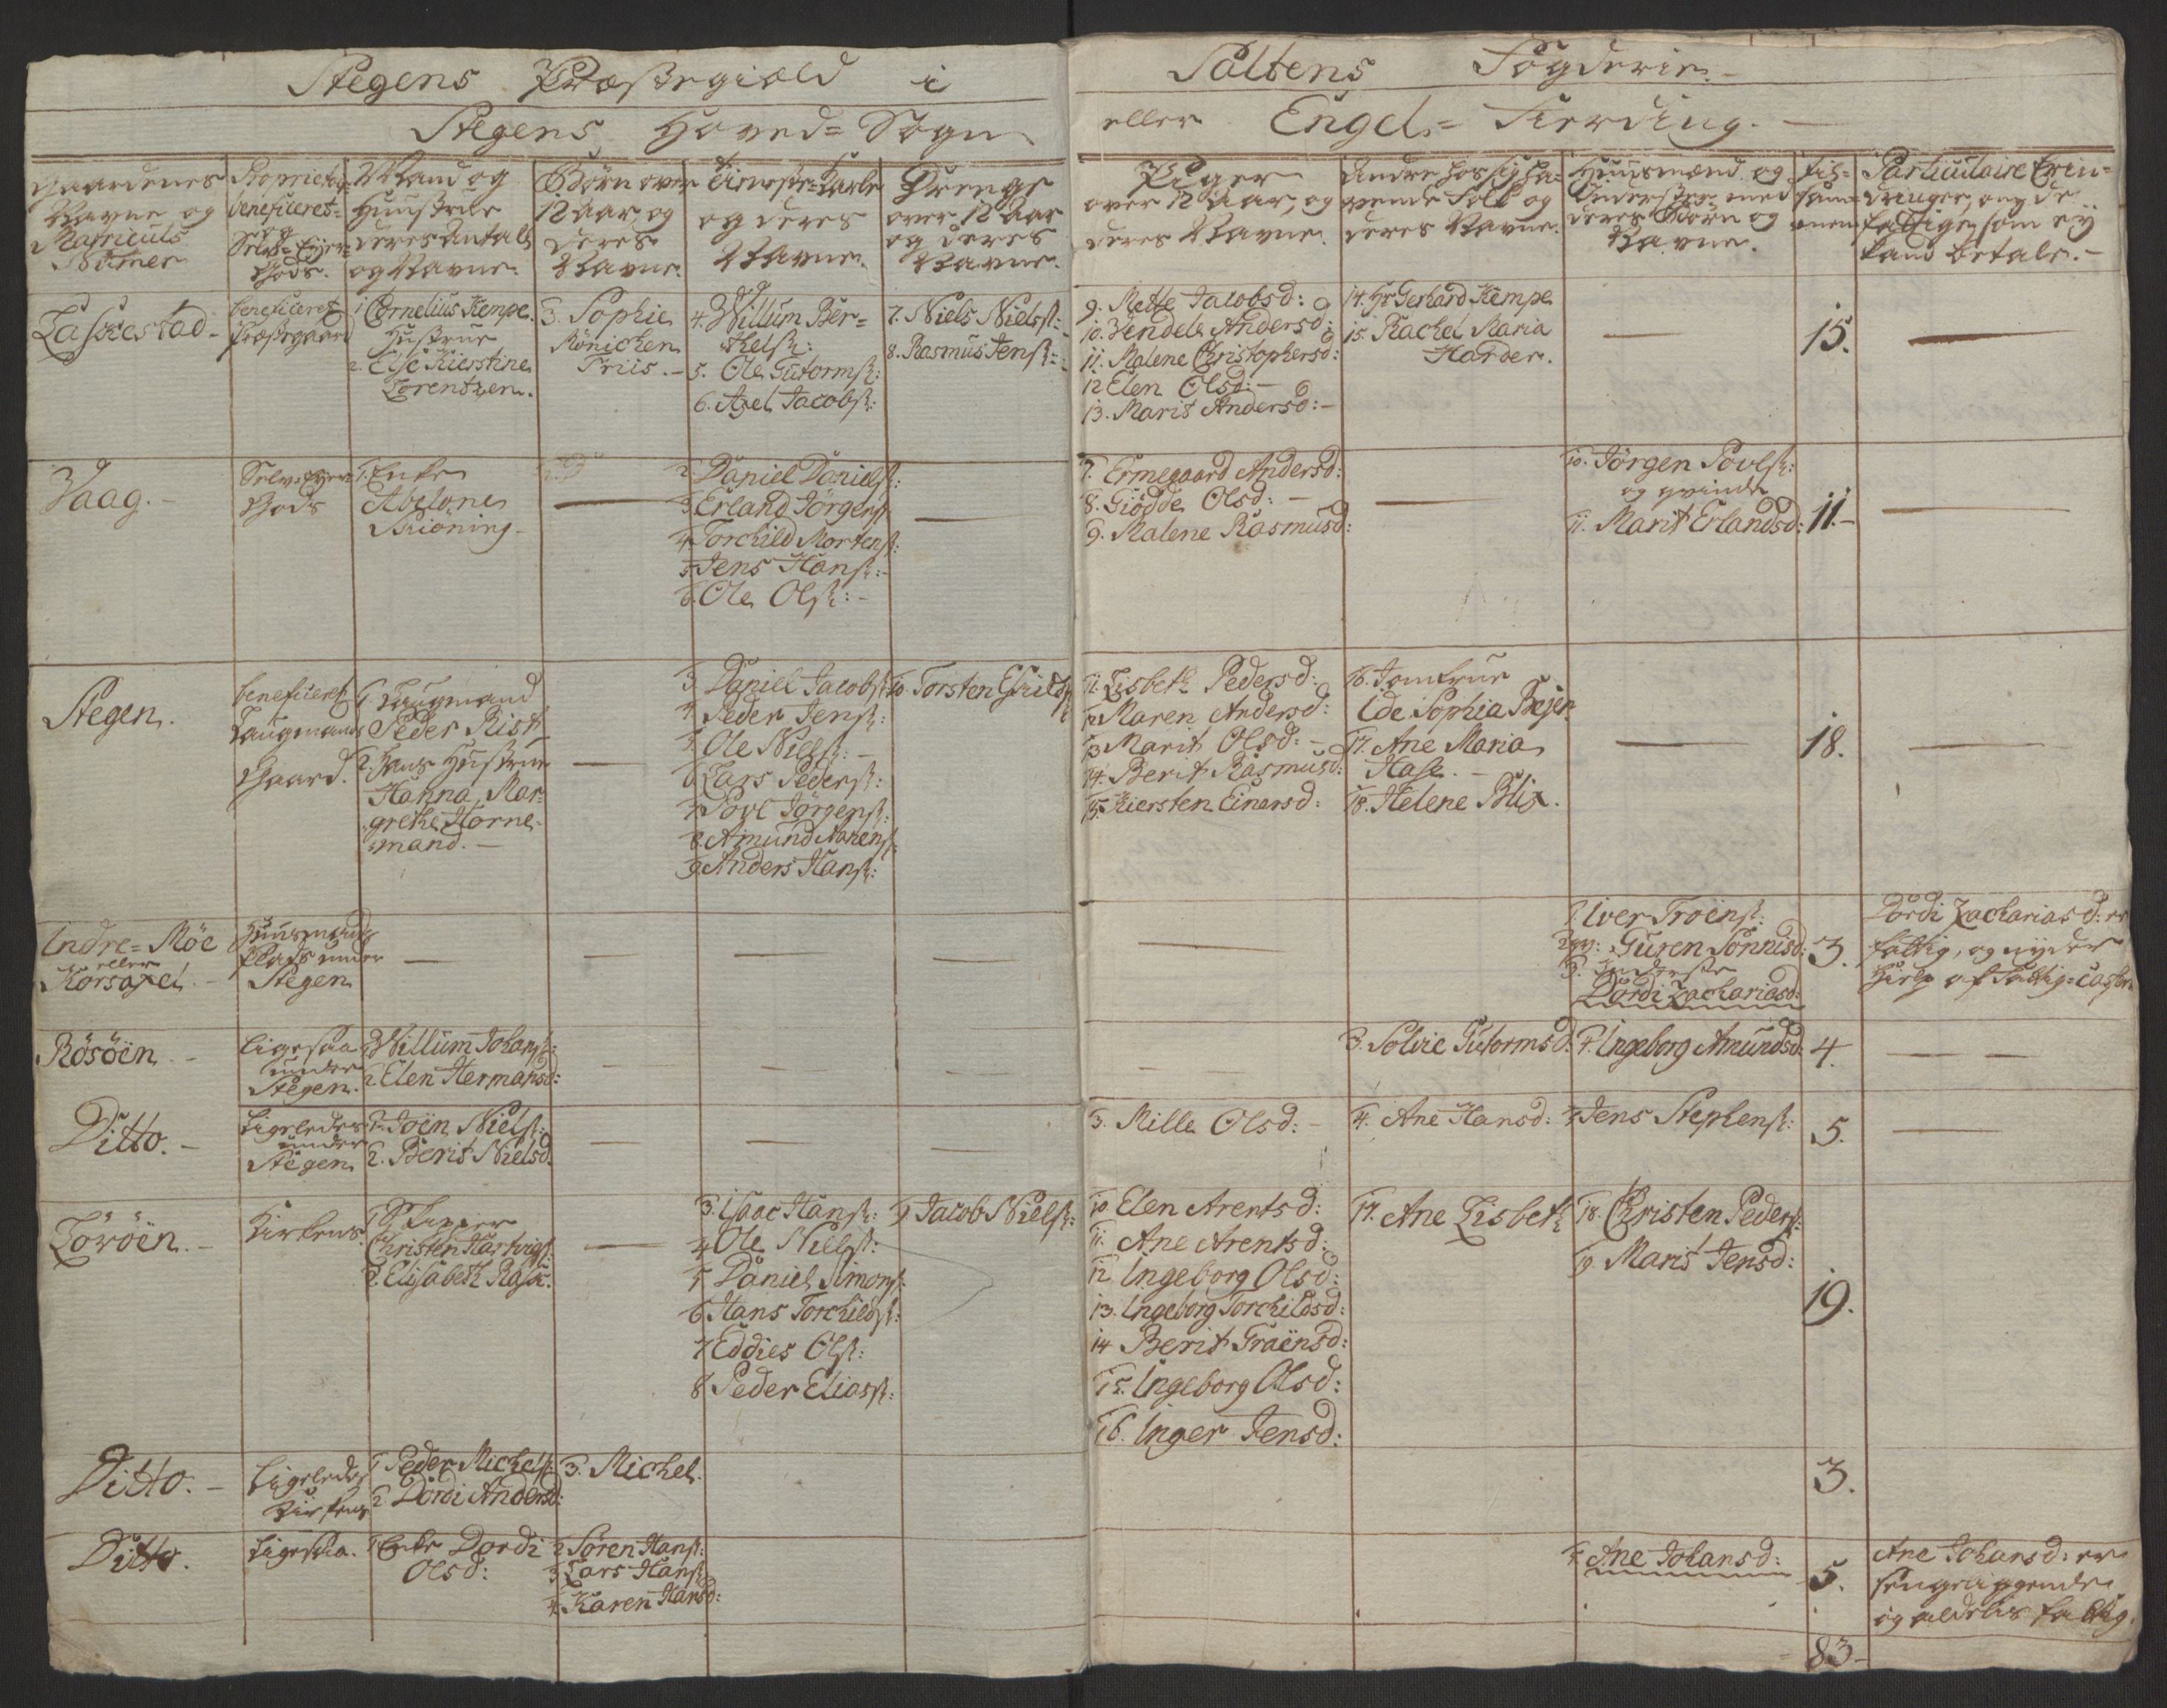 Stegens Præstegiæld i
Saltens Fogderie.
Stegens Hoved= Sogn
eller Engel= Fierding.
Gaardenes
Navne og
Matriculs
Numer
Proprietair
beneficeret=
og
Selv=Ejer=
Gods.
Mand og
Huustrue
deres Antal
og Navne.
Børn over
12 Aar, og
deres
Navne.
Tieneste=Karle
og deres
Navne.
Drenge
over 12 Aar
og deres
Navne.
Piger
over 12 Aar, og
deres Navne.
Andre hos sig ha=
vende Folk og
deres Navne.
Huusmænd og
Inderster med
deres Børn og
Navne.
Til=
sam=
men
Particulaire Erin=
dringer, om de
fattige, som ey
kand betale.
Laskestad
beneficeret
Præstegaard
1 Cornelius Kempe.
Hustrue
2. Else Kierstine
Lorentzen.
3. Sophie
Mönichen
Friis.
4. Willum Ber=
thelss:
5. Ole Gutormss:
6. Axel Jacobss:
7. Niels Nielss:
8. Rasmus Jenss:
9. Mette Jacobsd:
10. Vendele Andersd:
11. Malene Christophersd:
12 Elen Olsd:
13. Marit Andersd:
14. Hr Gerhard Kempe
15. Rachel Maria
Harder.
15.
Vaag.
Selv=Eyer
Gods
1. Enke
Abelone
Skioning.
2. Daniel Danielss:
3 Erland Jörgenss:
4 Torchild Mortenss:
5 Jens Hanss:
6. Ole Olss:
7. Ermegaard Andersd:
8. Giödde Olsd:
9. Malene Rasmusd:
10. Jörgen Povlss:
og qvinde
11. Marit Erlandsd:
11.
Stegen.
beneficeret
Laugmands
Gaard.
1 Laugmand
Peder Rist
2. Hans Hustrue
Hanna Mar=
grethe Horne=
mand.
3 Daniel Jacobss:
4 Peder Jenss:
5 Ole Nielss:
6 Lars Pederss:
7 Povl Jörgenss:
8. Amund Arenss:
9. Anders Hanss:
10. Torsten Eskildss:
11. Lisbeth Pedersd:
12 Maren Andersd:
13 Marit Olsd:
14. Berit Rasmusd:
15. Kiersten Einersd:
16. Jomfrue
Ede Sophia Bejer
17. Ane Maria
Hase.
18. Helene Blix.
18.
Indre=Möe
eller
Korsaxel.
Huusmands
Plads under
Stegen
1. Iver Troenss:
2 qv: Guren Sönnisd:
3. Inderste
Dordi Zachariasd:
3.
Dordi Zachariasd: er
fattig, og nyder
Hielp af Fattig=Cassen
Rösöen
ligesaa
under
Stegen.
1 Willum Johanss:
2. Elen Hermansd:
3. Solvie Gutormsd:
4. Ingeborg Amundsd:
4.
Ditto.
Ligeledes
under
Stegen
1. Joen Nielss:
2. Berit Nielsd.
3. Mille Olsd:
4. Ane Hansd:
5 Jens Stephenss:
5.
Lövöen.
Kirkens
1 Skipper
Christen Hartvigs:
2. Elisabeth Rask.
3. Isaac Hanss:
4 Ole Nielss:
5 Daniel Simonss:
6 Hans Torchildss:
7 Eddies Olss:
8 Peder Eliass:
9 Jacob Nielss:
10 Elen Arentsd:
11. Ane Arentsd:
12 Ingeborg Olsd:
13. Ingeborg Torchildsd:
14 Berit Graensd:
15. Ingeborg Olsd:
16. Inger Jensd:
17. Ane Lisbeth
18. Christen Pederss:
19 Marit Jensd:
19.
Ditto.
Ligeledes
Kirkens
1 Peder Michelss:
2 Dordi Andersd:
3. Michel.
3.
Ditto.
Ligesaa.
1 Enke Dordi
Olsd:
2 Sören Hanss:
3 Lars Hanss:
4. Karen Hansd:
5. Ane Johansd:
5.
Ane Johansd: er
sengeliggende
og aldeles fattig.
83